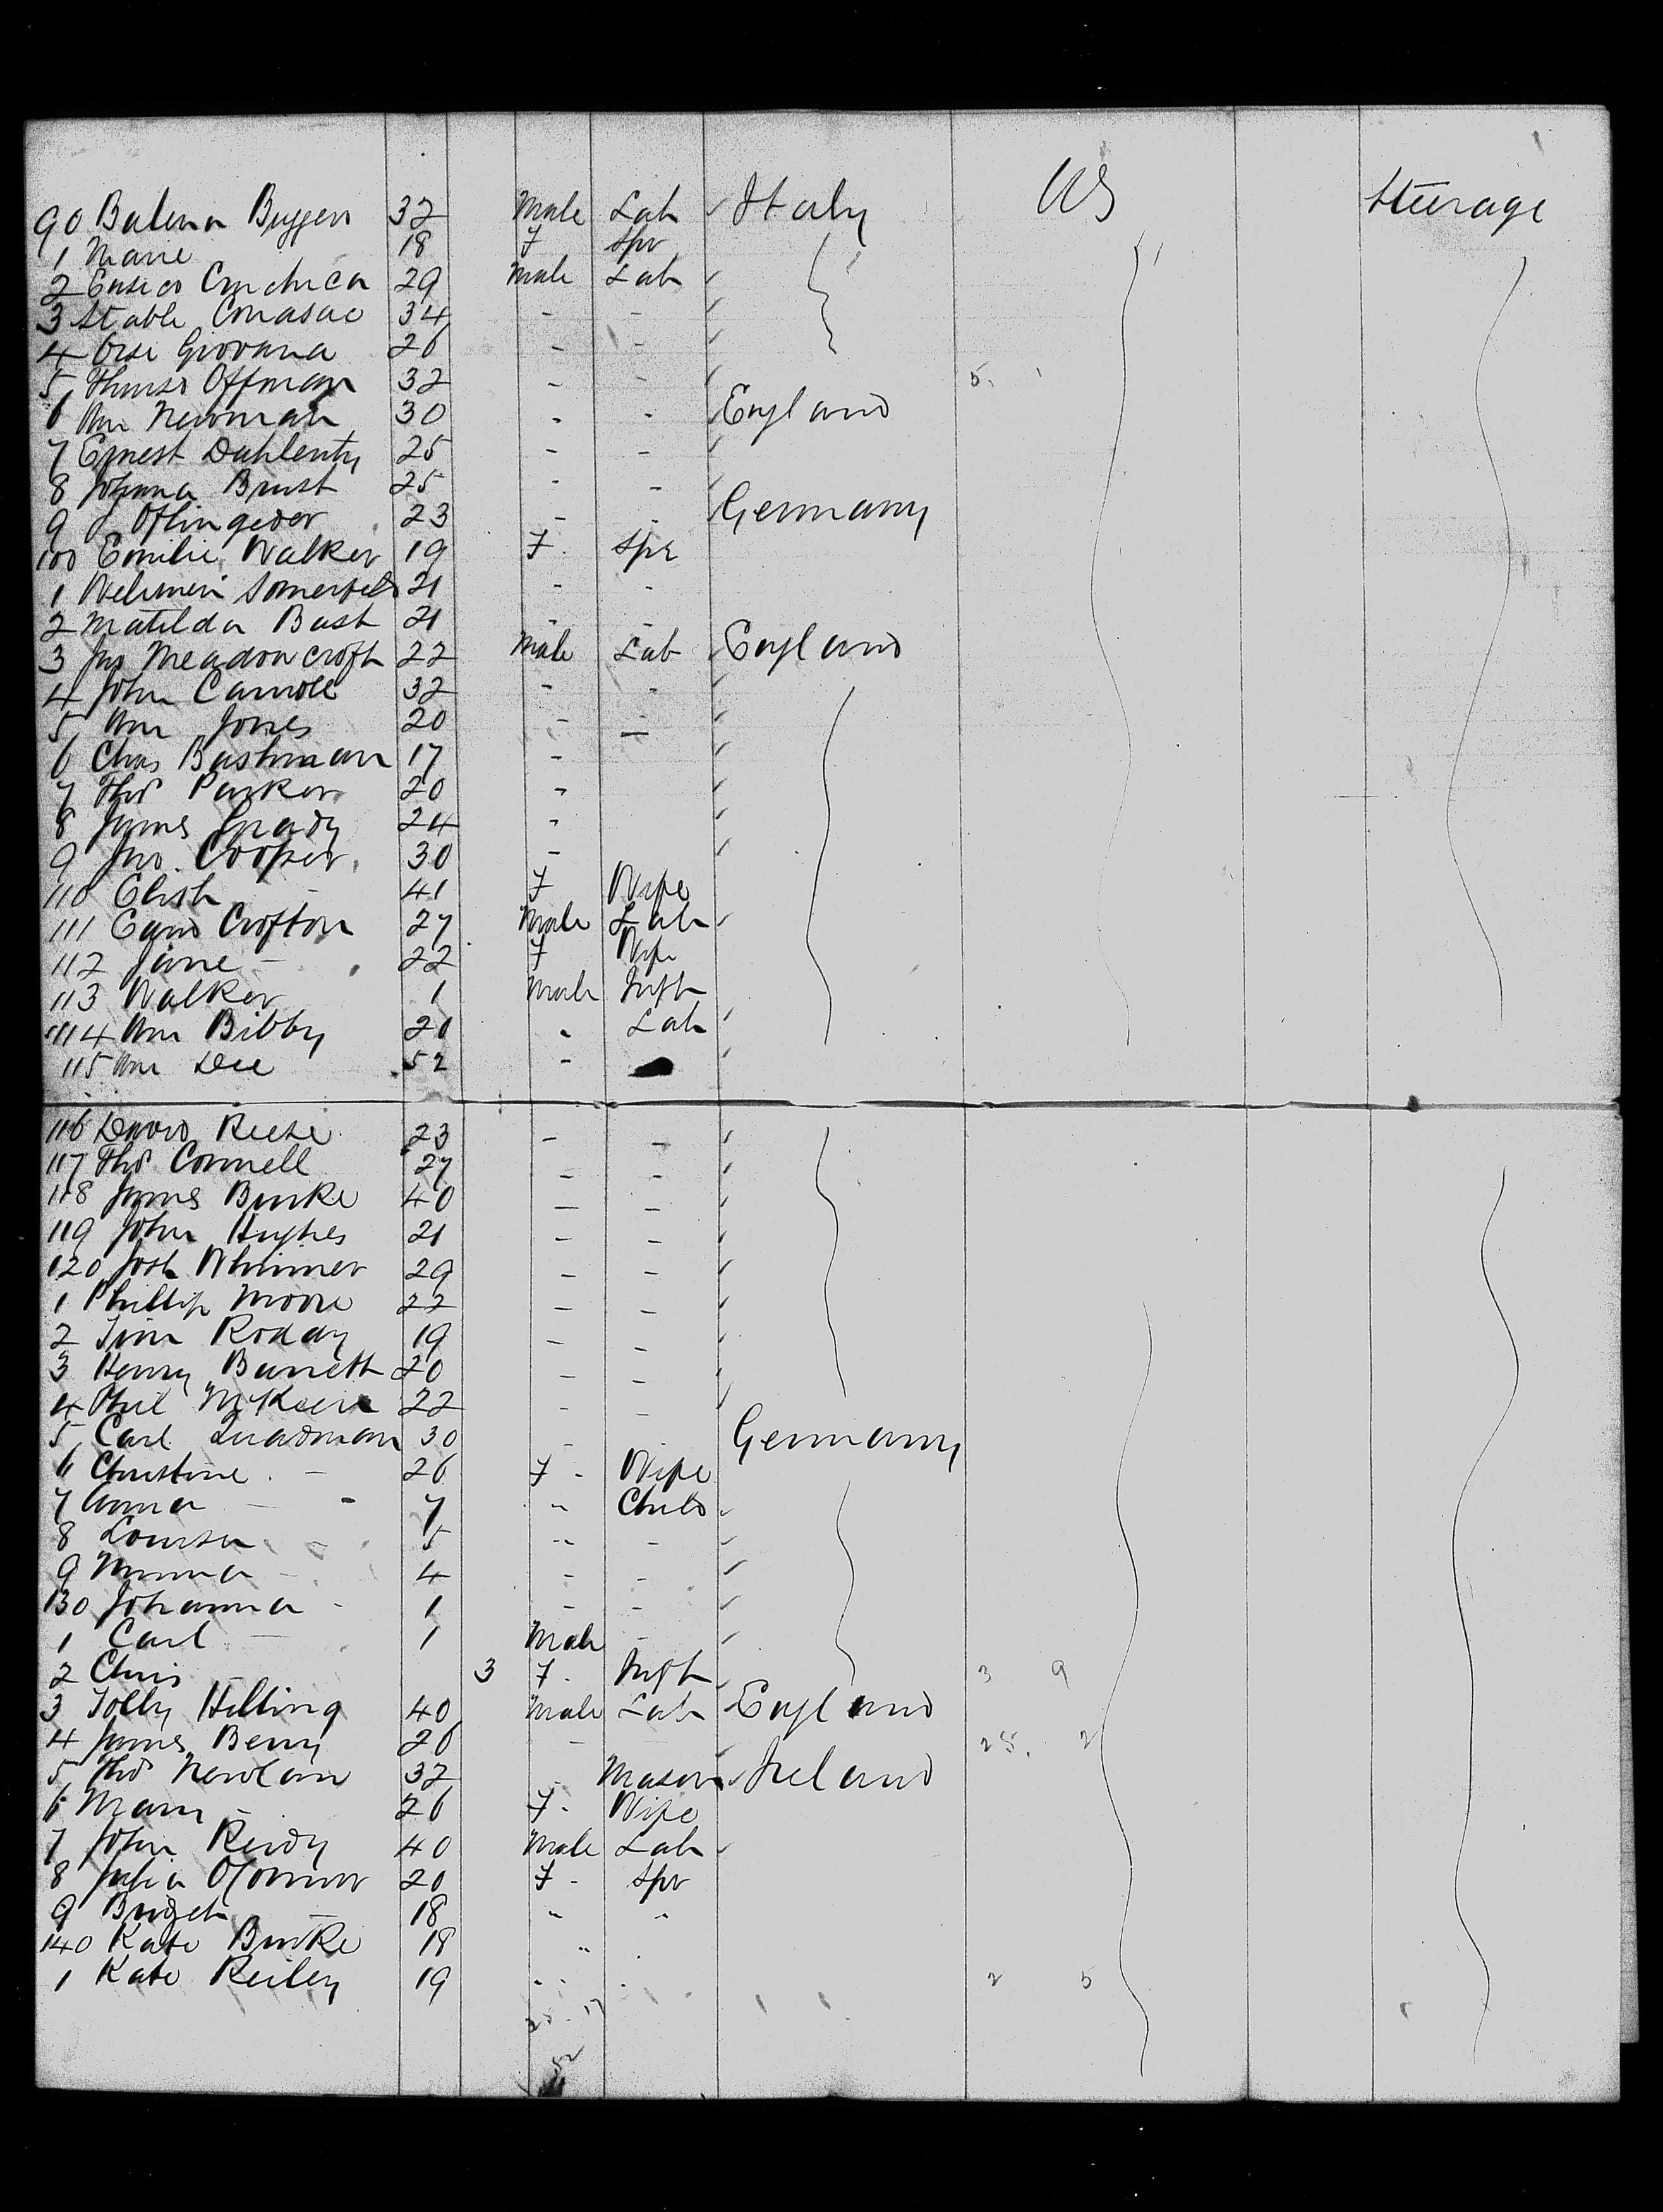 90 Balena Buggero 32 Male Lab Italy US Steerage
1 Marie 18 F Spr
2 29 Male Lab
3 Stable 34 - -
4 Orsi Giovana 26 - -
5 Offman 32 - - 5. 1
6 Wm Newman 30 - - England
7 Ernest Dahlenty 25 - -
8 Johana Brust 25 - -
9 J Oflingeder 23 - - Germany
100 Emilie Walker 19 F. Spr
1 21 - -
2 Matilda Bast 21 - -
3 Jno Meadowcroft 22 Male Lab England
4 John Carroll 32 - -
5 Wm Jones 20 - -
6 Chas Bashman 17 -
7 Thos Parker 20 -
8 James Grady 24 -
9 Jno. Cooper 30 -
110 Elish - 41 F Wife
111 Crofton 27 Male Lab
112 Jane - 22 F Wife
113 Walker 1 Male Inft
114 Wm Bibby 20 - Lab
115 Wm Dee 52 -
116 David Reese 23 - -
117 Thos Connell 27 - -
118 James Burke 40 - -
119 John Hughes 21 - -
120 Josh Whimer 29 - -
1 Phillip Moore 22 - -
2 Tim Roday 19 - -
3 Henry Barrett 20 - -
4 Phil McKeen 22 - -
5 Carl Quadman 30 - Germany
6 Christine - 26 F - Wife
7 Anna - - 7 " Child
8 Louisa - 5 " -
9 Minna - 4 - -
130 Johanna - 1 - -
1 Carl - 1 Male -
2 Chris - 3 F. Inft 3 9
3 Tolly Hilling 40 Male Lab England
4 James Berry 26 - - 25. 2
5 Thos Newlan 32 - Mason Ireland
6 Mary - 26 F - Wife
7 John Reidy 40 Male Lab
8 Julia O'Connor 20 F - Spr
9 Bridget - 18 " "
140 Kate Burke 18 "
1 Kate Reiley 19 - 2 5
35 17
52